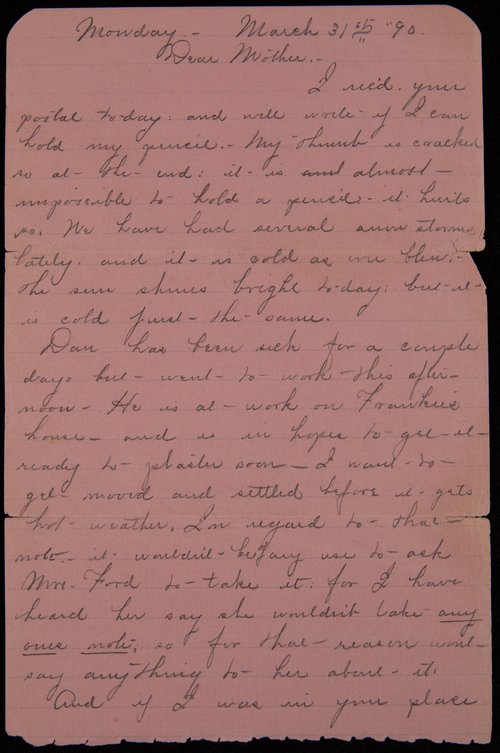 Monday.- March 31st "90.
Dear Mother.-
I rec'd. your
postal to-day: and will write if I can
hold my pencil.- My thumb is cracked
so at- the- end: it- is and almost-
impossible to- hold a pencil- it hurts
so. We have had several snow storms
lately. and it- is cold as ever blew.-
the sun shines bright to-day: but-it-
is cold just- the- same.
Dan has been sick for a couple
days but- went- to- work- this after-
noon- He is at- work on Frankie's
house- and is in hopes to- get-it-
ready to- plaster soon- I want- to-
get- moved and settled before it- gets
hot- weather. In regard to- that-
note.- it- wouldn't- be any use to- ask
Mrs- Ford to- take it: for I have
heard her say she wouldn't take any
ones note; so for that- reason wont-
say anything to- her about- it.
And if I was in your place